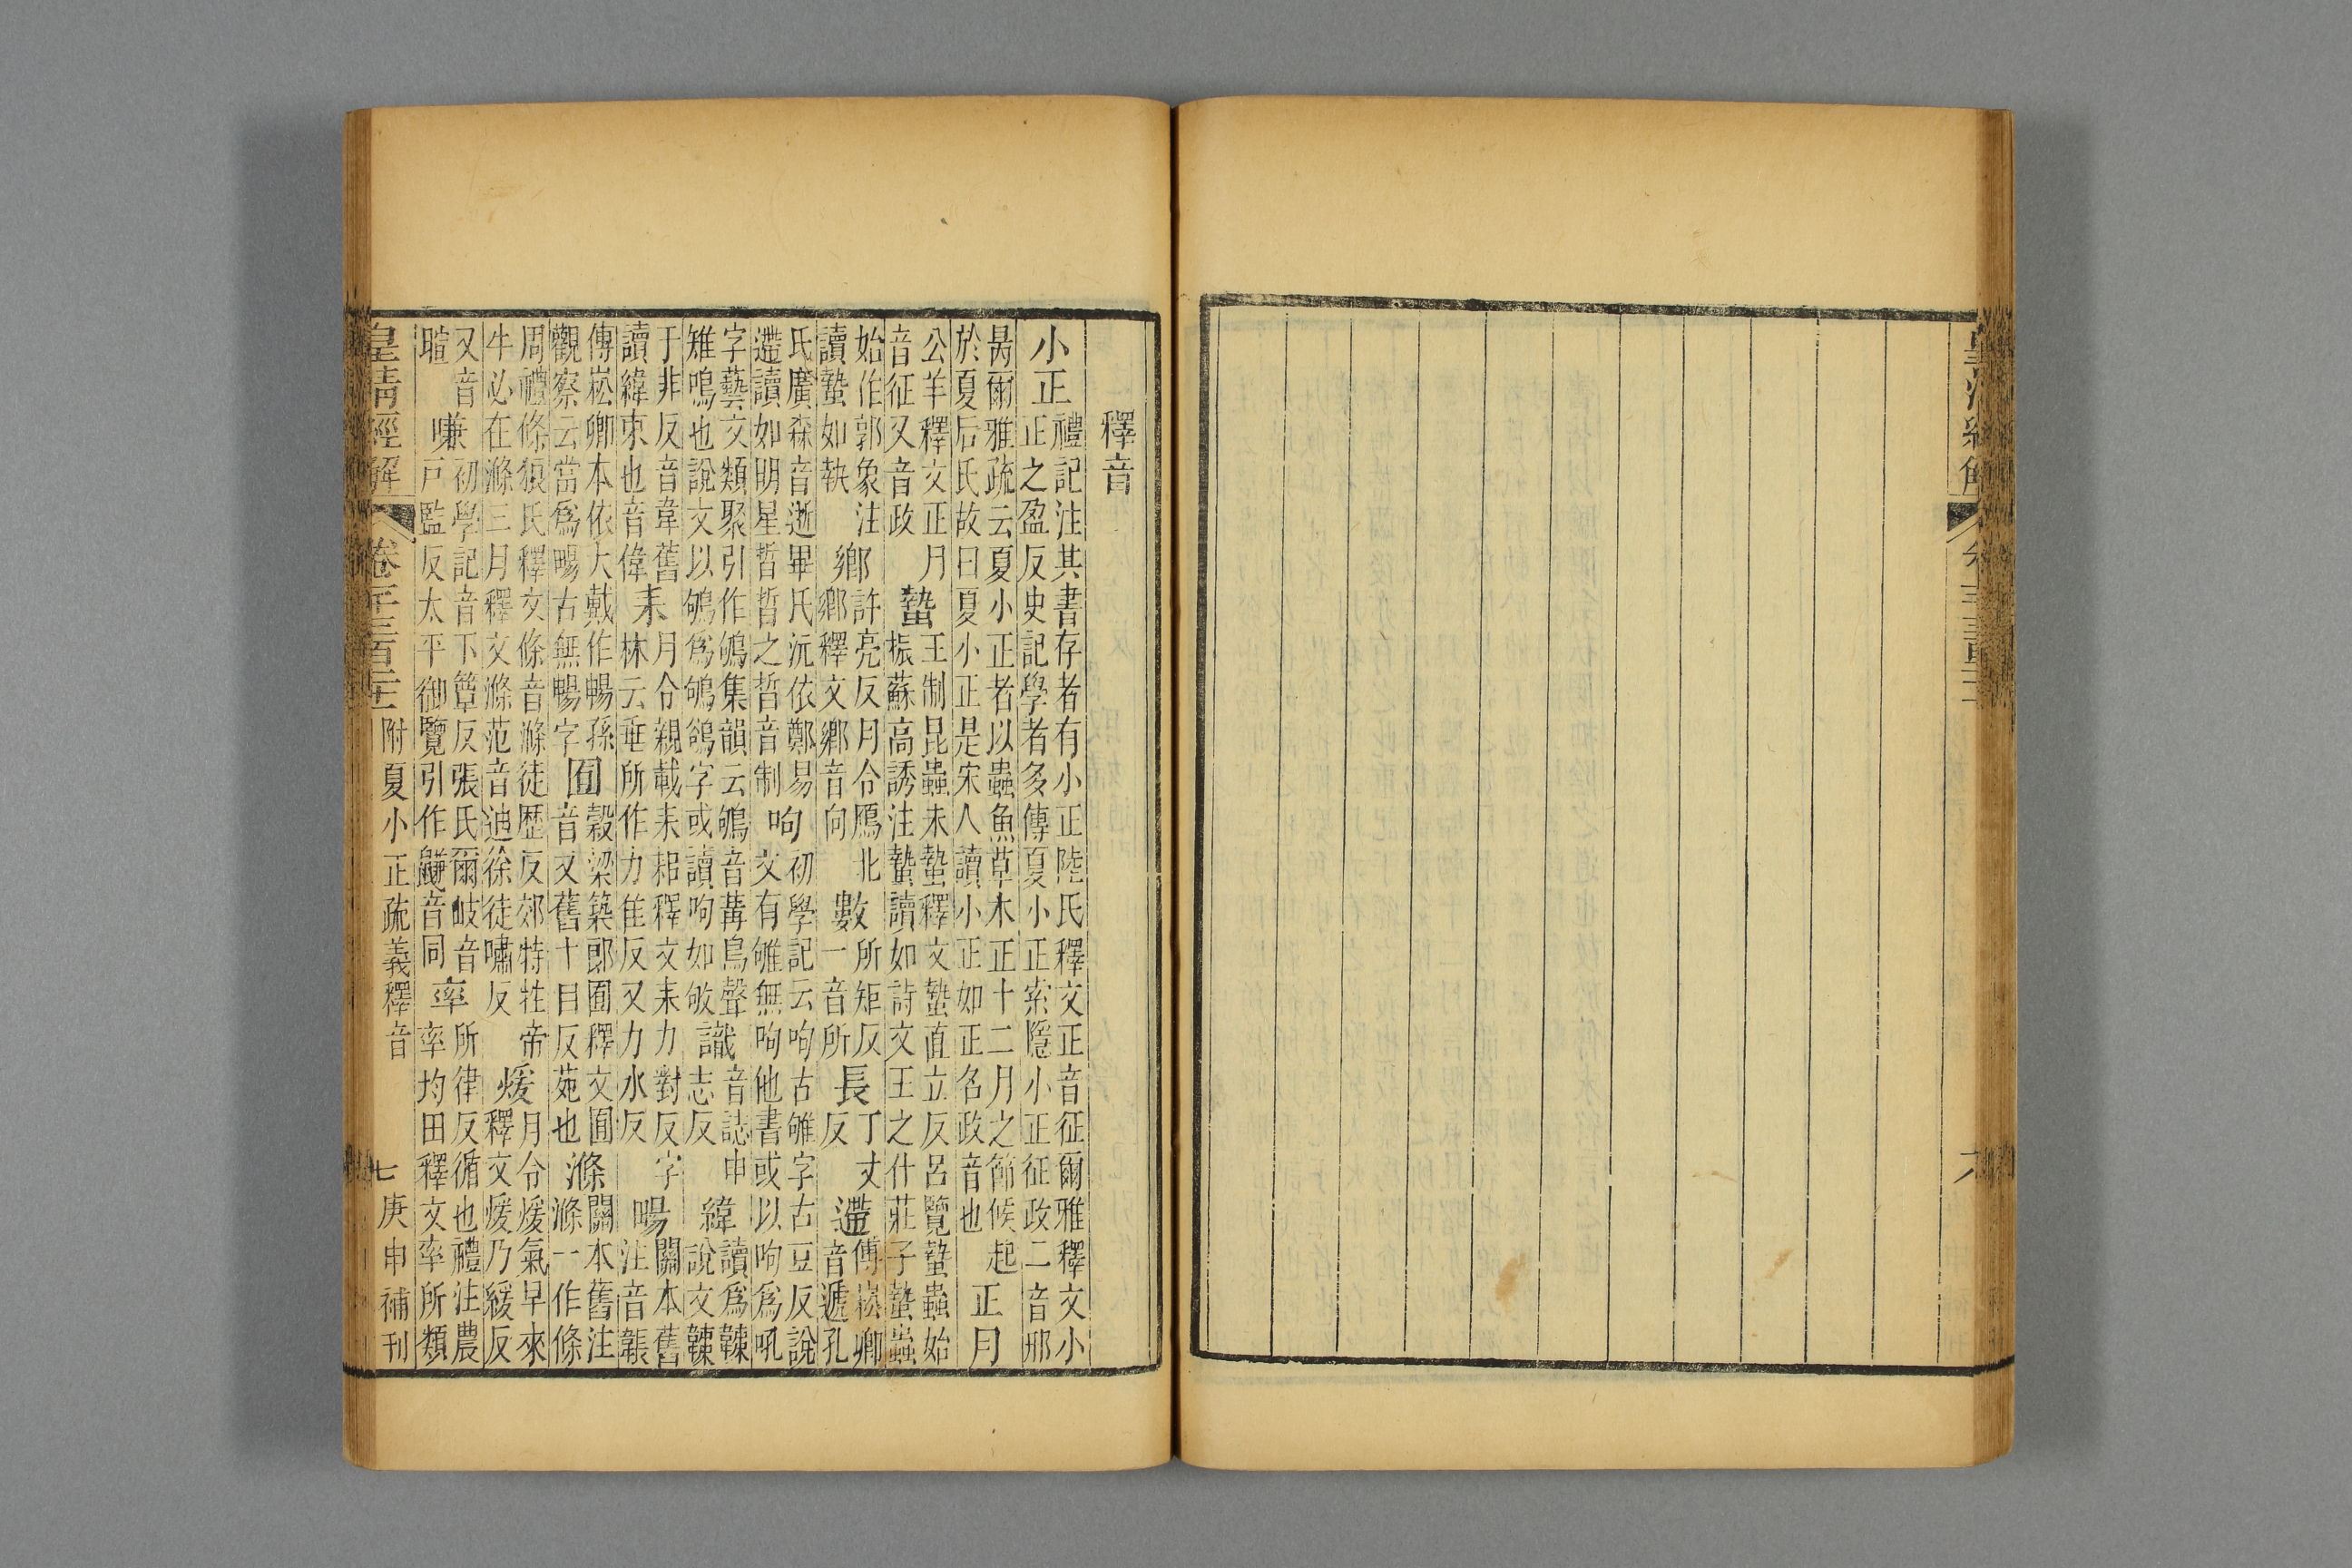 釋音
小正
禮記注其書存者有小正陸氏釋文正音征爾雅釋文小
正之盈反史記學者多傳夏小正索隱小正征政二音邢
昺爾雅疏云夏小正者以蟲魚草木正十二月之節候起
於夏后氏故曰夏小正是宋人讀小正如正名政音也
正月
公羊釋文正月
音征又音政
蟄
王制昆蟲未蟄釋文蟄直立反呂覽蟄蟲始
振蘇高誘注蟄讀如詩文王之什莊子蟄蟲
始作郭象注
讀蟄如執
鄉
許亮反月令鴈北
鄉釋文鄉音向
數
所矩反
一音所
長
丁丈
反
遰
傅崧卿
音遞孔
氏廣森音逝畢氏沅依鄭易
遰讀如明星晢晢之晢音制
呴
初學記云呴古雊字古豆反說
文有雊無呴他書或以呴爲吼
字藝文類聚引作鴝集韻云鴝音冓鳥聲
雉鳴也說文以鴝爲鴝鵒字或讀呴如敂
識
音誌申
志反
緯
讀爲
說文
于非反音韋舊
讀緯束也音偉
耒
月令親載耒耜釋文耒力對反字
林云垂所作力隹反又力水反
暘
關本舊
注音韔
傳崧卿本依大戴作暢孫
觀察云當爲畼古無暢字
囿
穀梁築郎囿釋文囿
音又舊十目反苑也
滌
關本舊注
滌一作條
周禮條狼氏釋文條音滌徒歷反郊特牲帝
牛必在滌三月釋文滌范音迪徐徒嘯反
煖
月令煖氣早來
釋文煖乃緩反
又音
暄
嗛
初學記音下簟反張氏爾岐音
戶監反太平御覽引作鼸音同
率
所律反循也禮注農
率均田釋文率所類
皇清經解 卷千三百二十 附夏小正疏義釋音 七 庚申補刊